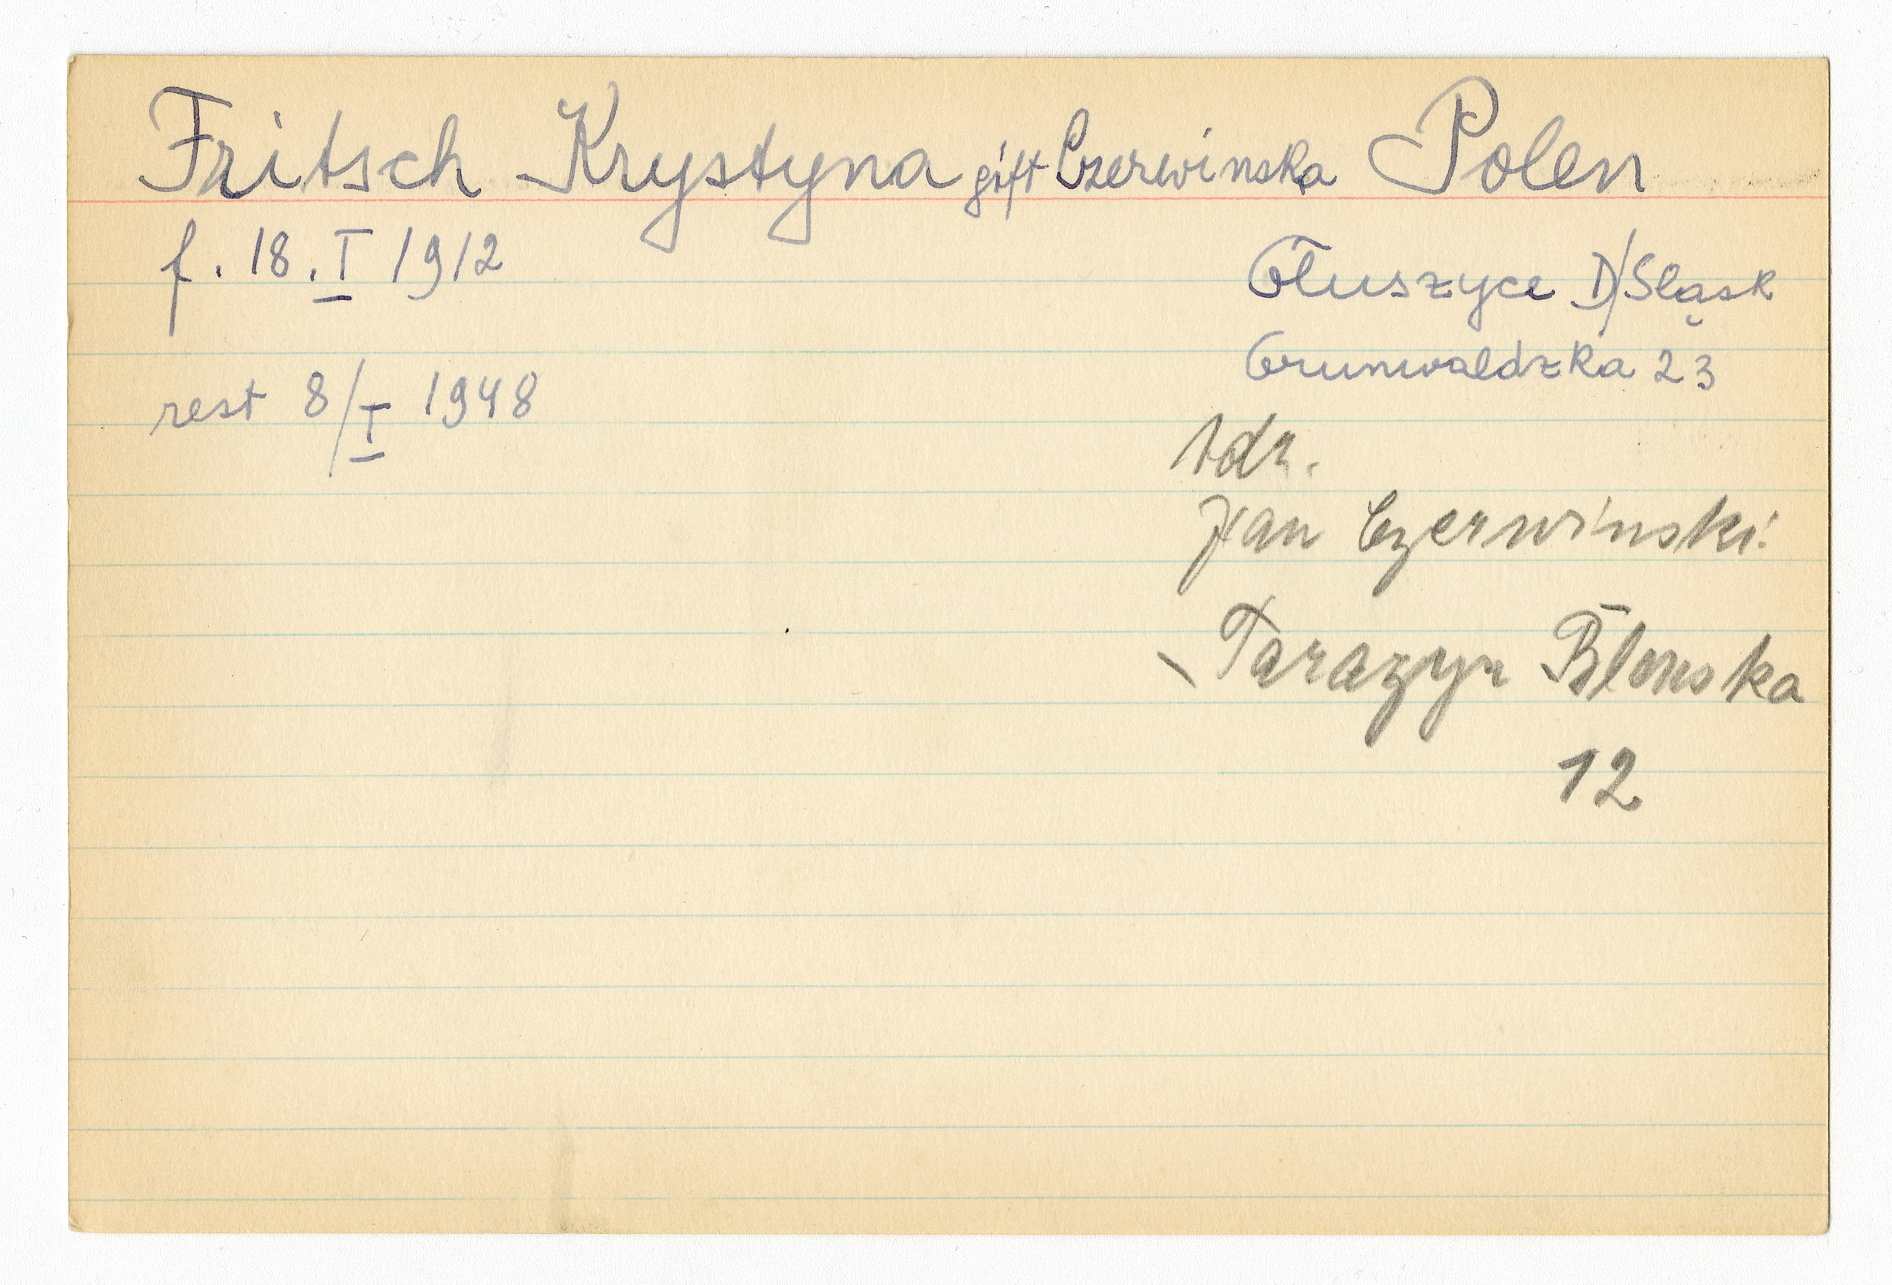 Fritsch Krystyna gift Czerwinska Polen
f. 18. I 1912
Głuszyce D/Sląsk
Grunwaldzka 23
rest 8/I 1948
Adr.
Jan Czerwinski
Blonska
12